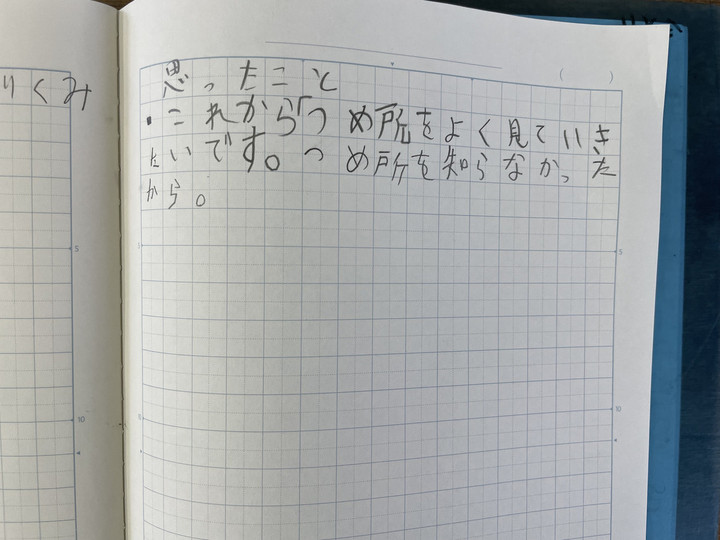 りくみ
思ったこと
・これからつめ所をよく見ていき
たいです。つめ所を知らなかった
から。
( )
5
10
5
10